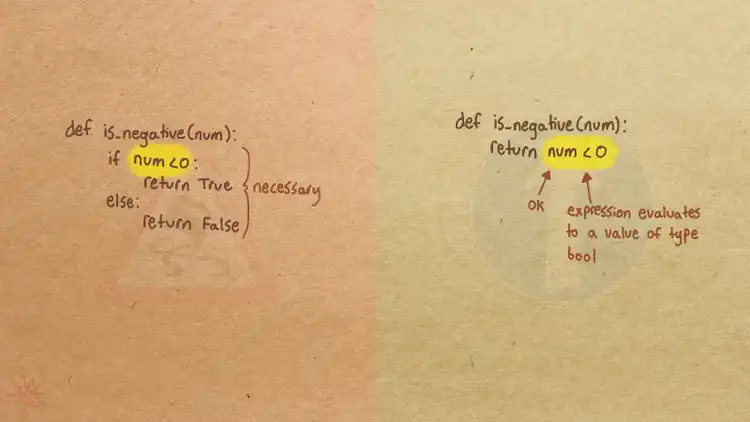 def is_negative(num):
if num<0:
return True
else:
return False
necessary
def is_negative(num):
return num<0
OK
expression evaluates
to a value of type
bool